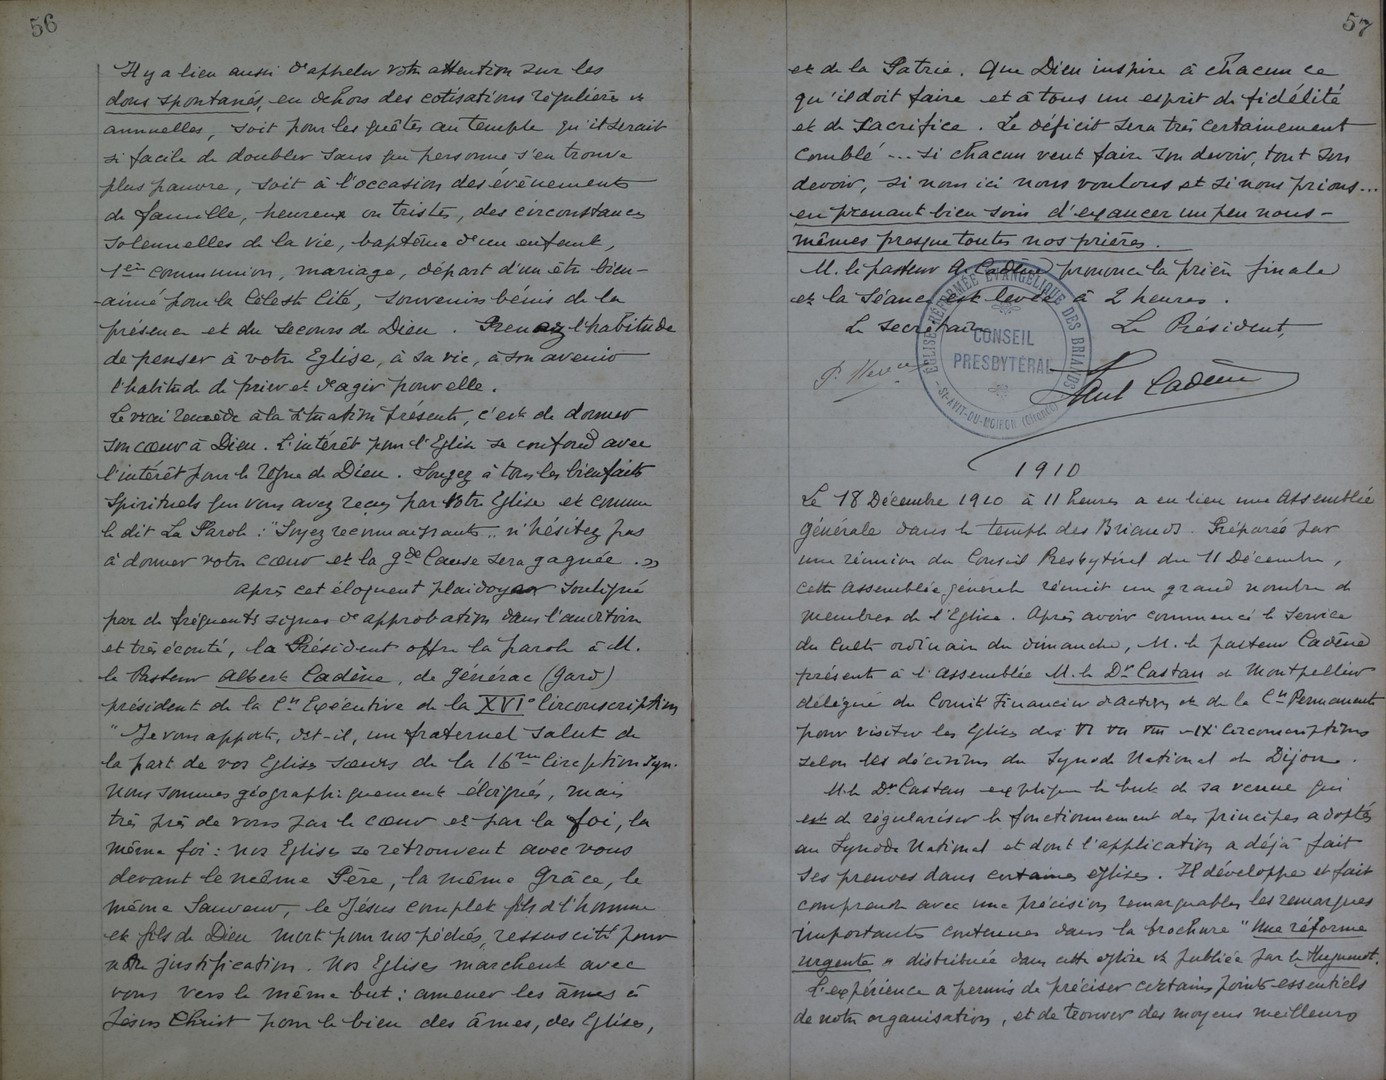 56
Il y a lieu aussi d'appeler votre attention sur les
dons spontanés, en dehors des cotisations régulières et
annuelles, soit pour les quêtes au temple qu'il serait
si facile de doubler sans que personne s'en trouve
plus pauvre, soit à l'occasion des évènements
de famille, heureux ou tristes, des circonstances
solennelles de la vie, baptême d'un enfant,
1ère communion, mariage, départ d'un être bien-
aimé pour la Céleste Cité, souvenirs bénis de la
présence et du secours de Dieu. Prenez l'habitude
de penser à votre Eglise, à sa vie, à son avenir
l'habitude de prier et d'agir pour elle.
Le vrai remède à la situation présente, c'est de donner
son cœur à Dieu. L'intérêt pour l'Eglise se confond avec
l'intérêt pour le règne de Dieu. Songez à tous les bienfaits
spirituels que vous avez reçus par votre Eglise et comme
le dit La Parole : "Soyez reconnaissants" n'hésitez pas
à donner votre cœur et la gde Cause sera gagnée. »
Après cet éloquent plaidoyer souligné
par de fréquents signes d'approbation dans l'auditoire
et très écouté, le Président offre la parole à M.
le Pasteur Albert Cadène, de Générac (Gard)
président de la Con Exécutive de la XVIe Circonscription
"Je vous apporte, dit-il, un fraternel salut de
la part de vos Eglises sœurs de la 16me Circption Syn.
Nous sommes géographiquement éloignés, mais
très près de vous par le cœur et par la foi, la
même foi : nos Eglises se retrouvent avec vous
devant le même Père, la même Grâce, le
même Sauveur, le Jésus complet fils de l'homme
et fils de Dieu mort pour nos péchés, ressuscité pour
notre justification. Nos Eglises marchent avec
vous vers le même but : amener les âmes à
Jésus Christ pour le bien des âmes, des Eglises,
57
et de la Patrie. Que Dieu inspire à chacun ce
qu'il doit faire et à tous un esprit de fidélité
et de sacrifice. Le déficit sera très certainement
comblé... si chacun veut faire son devoir, tout son
devoir, si nous ici nous voulons et si nous prions...
en prenant bien soin d'exaucer un peu nous-
mêmes presque toutes nos prières.
M. le pasteur A. Cadène prononce la prière finale
et la séance est levée à 2 heures.
Le Secrétaire Le Président,
ÉGLISE RÉFORMÉE ÉVANGÉLIQUE DES BRIANDS
CONSEIL
PRESBYTÉRAL
Paul Cadène
1910
Le 18 Décembre 1910 à 11 heures a eu lieu une Assemblée
Générale dans le temple des Briands. Préparée par
une réunion du Conseil Presbytéral du 11 Décembre,
cette Assemblée générale réunit un grand nombre de
membres de l'Eglise. Après avoir commencé le service
du Culte ordinaire du dimanche, M. le pasteur Cadène
présente à l'Assemblée M. le Dr Castan de Montpellier
délégué du Comité Financier d'action et de la Con Permanente
pour visiter les Eglises des VI VII VIII - IXe Circonscriptions
selon les décisions du Synode National de Dijon.
M. le Dr Castan explique le but de sa venue qui
est de régulariser le fonctionnement des principes adoptés
au Synode National et dont l'application a déjà fait
ses preuves dans certaines églises. Il développe et fait
comprendre avec une précision remarquable les remarques
importantes contenues dans la brochure "Une réforme
urgente" distribuée dans cette église et publiée par le Huguenot.
L'expérience a permis de préciser certains points essentiels
de notre organisation, et de trouver des moyens meilleurs